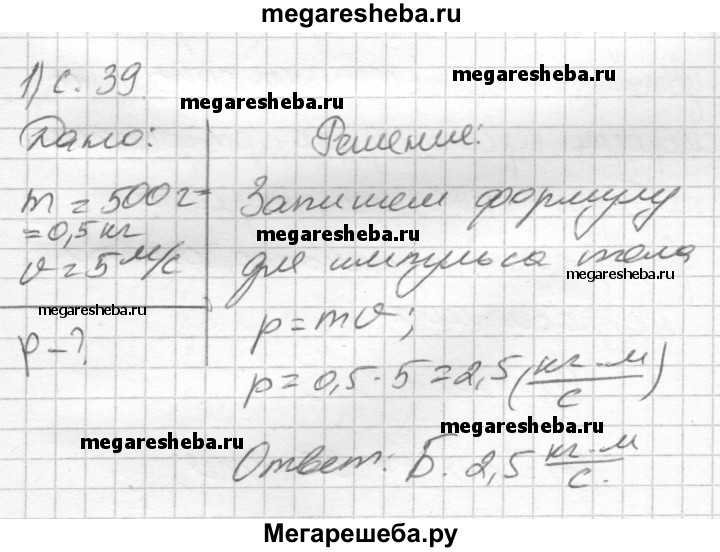 megaresheba.ru
1) с. 39
megaresheba.ru
megaresheba.ru
Дано:
Решение:
m = 500 г =
= 0,5 кг
υ = 5 м/с
Запишем формулу
megaresheba.ru
для импульса тела
megaresheba.ru
megaresheba.ru
p = mυ;
p – ?
p = 0,5 · 5 = 2,5 (кг·м/с)
megaresheba.ru
megaresheba.ru
Ответ: Б. 2,5 кг·м/с.
Мегарешеба.ру